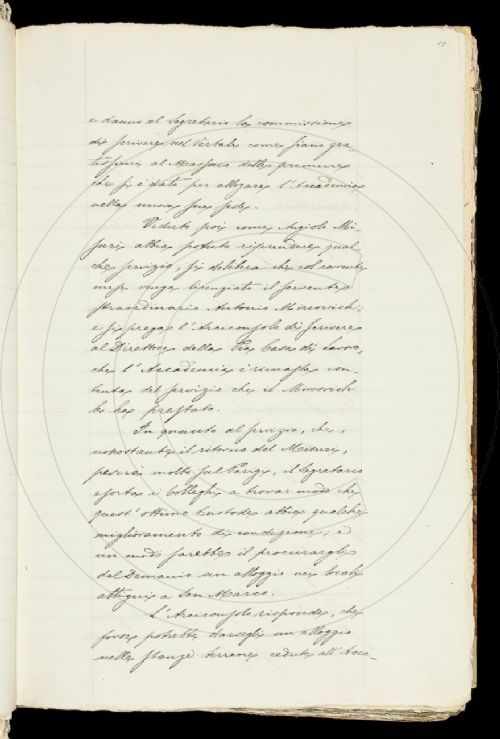 15
e danno al Segretario la commissione
di scrivere nel Verbale come siano gra-
tissimi al Massaro delle premure
che si è dato per allogare l'Accademia
nella nuova sua sede.
Veduto poi come Angiolo Mi-
suri abbia potuto riprendere qual
che servizio, si delibera che col corrente
mese venga licenziato il servente
straordinario Antonio Mircovich;
e si prega l'Arciconsolo di scrivere
al Direttore della Pia Casa di Lavoro,
che l'Accademia è rimasta con-
tenta del servizio che il Mircovich
le ha prestato.
In quanto al servizio, che,
nonostante il ritorno del Misuri,
peserà molto sul Parigi, il Segretario
esorta i Colleghi a trovar modo che
quest'ottimo Custode abbia qualche
miglioramento di condizione; ed
un modo sarebbe il procurargli
dal Demanio un alloggio nei locali
attigui a San Marco.
L'Arciconsolo risponde, che
forse potrebbe darsegli un alloggio
nelle stanze terrene cedute all'Acca-